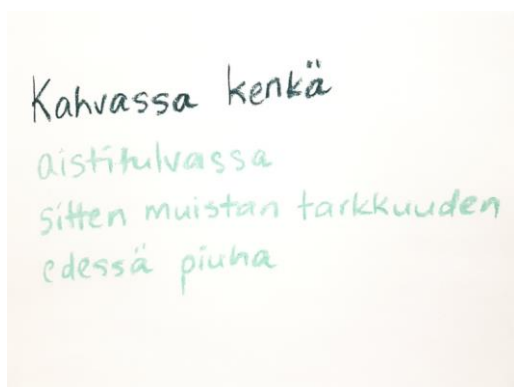 Kahvassa kenkä
aistitulvassa
sitten muistan tarkkuuden
edessä piuha